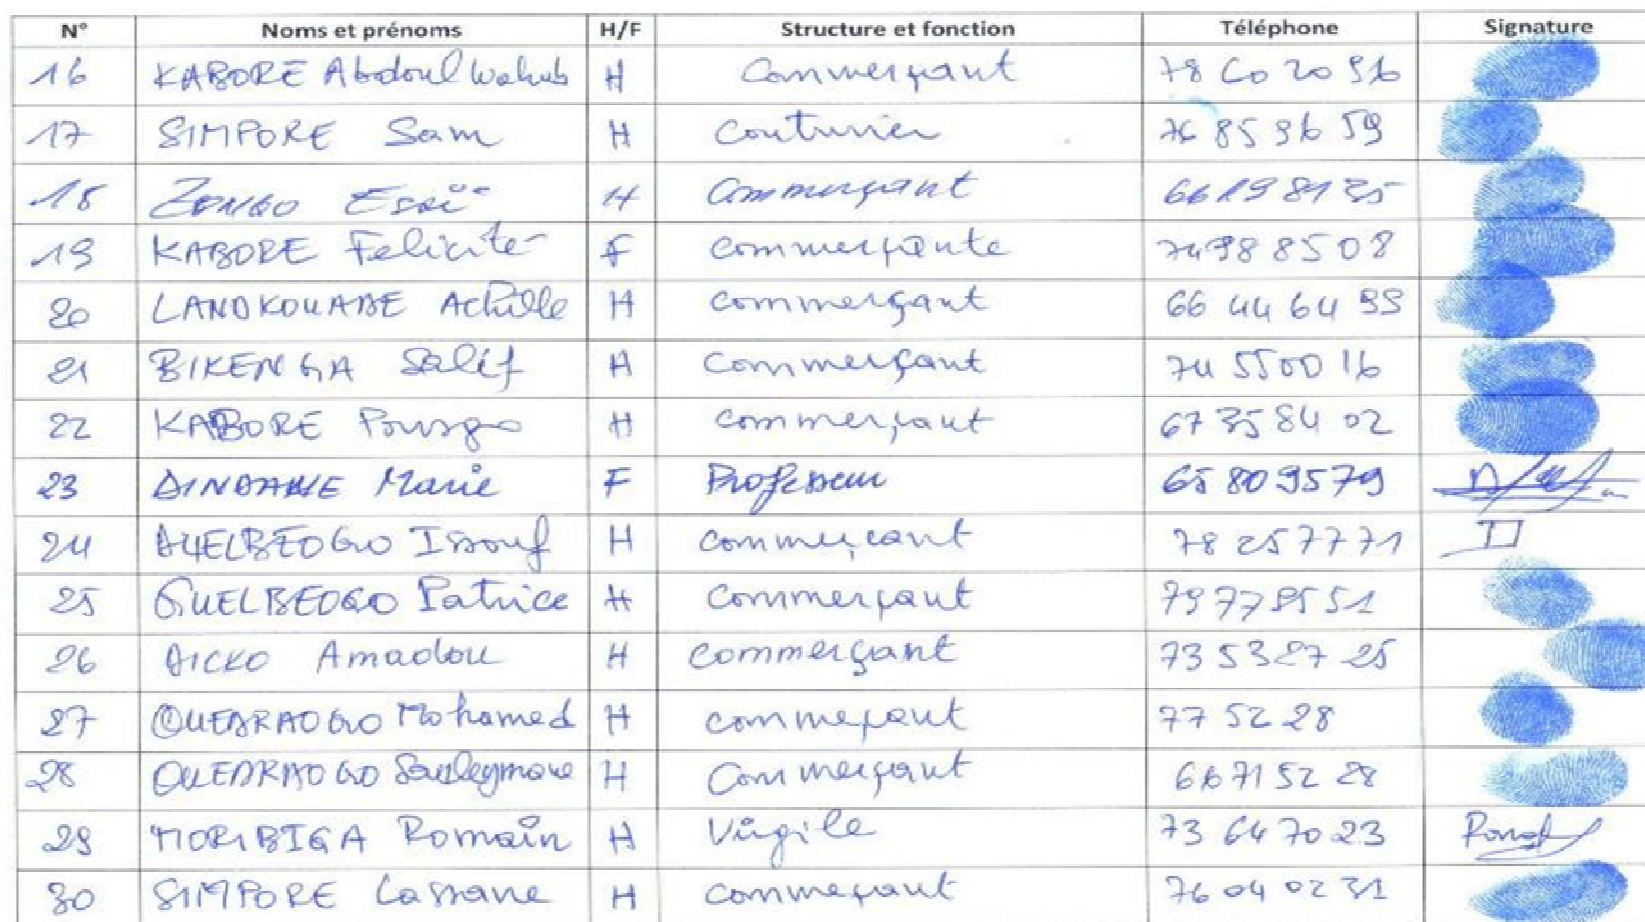 N° Noms et prénoms H/F Structure et fonction Téléphone Signature
16 KABORE Abdoul Wahab H Commerçant 78 60 20 96
17 SIMPORE Sam H Couturier 76 85 96 59
18 ZONGO Esaïe H Commerçant 66 19 81 35
19 KABORE Felicité F Commerçante 74 98 85 08
20 LANDKOUABE Achille H Commerçant 66 44 64 99
21 BIKENGA Salif H Commerçant 74 55 00 16
22 KABORE H Commerçant 67 35 84 02
23 Marie F Professeur 65 80 95 79
24 Issouf H commerçant 78 25 77 71
25 GUELBEOGO Patrice H Commerçant 79 77 95 51
26 DICKO Amadou H Commerçant 73 53 27 25
27 OUEDRAOGO Mohamed H commeçant 77 52 28
28 OUEDRAOGO Souleymane H Commerçant 66 71 52 28
29 MORIBIGA Romain H Virgile 73 64 70 23
30 SIMPORE Lassane H commeçant 76 04 02 31